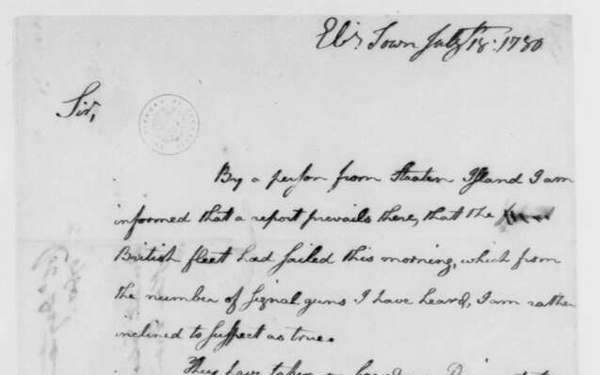 Eliz. Town July 18. 1780
Sir,
By a person from Staaten Island I am
informed that a report prevails there, that the
British fleet had sailed this morning, which from
the number of signal guns I have heard, I am rather
inclined to suspect as true.
They have taken on board